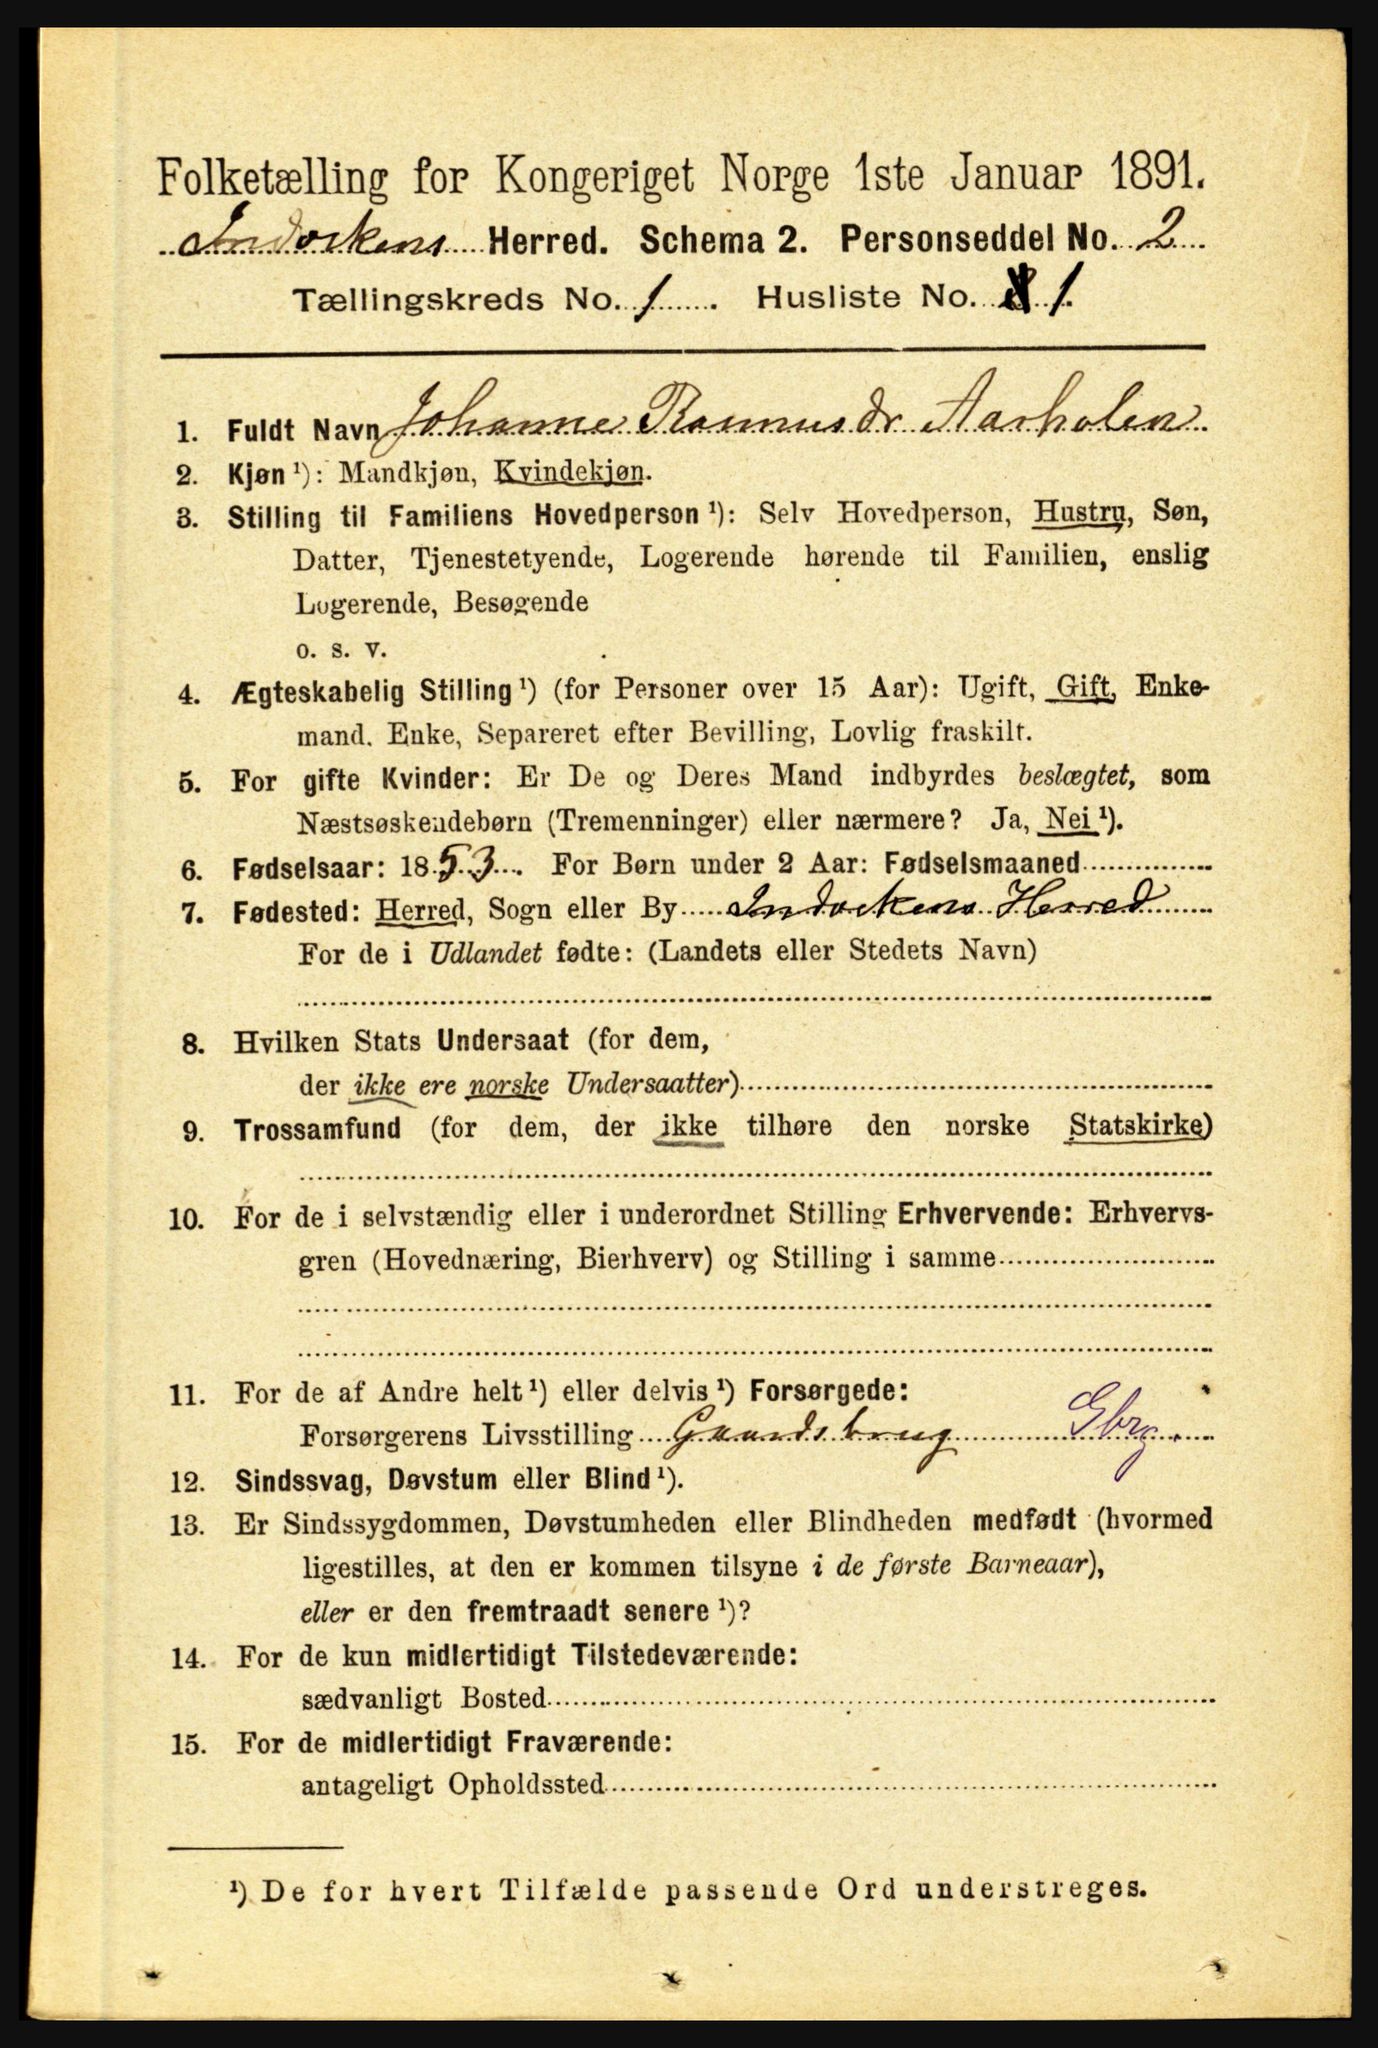 Folketælling for Kongeriget Norge 1ste Januar 1891.
Indvikens Herred. Schema 2. Personseddel No. 2
Tællingskreds No. 1. Husliste No. 1
1. Fuldt Navn Johanne Rasmusdr Aarholen
2. Kjøn ¹): Mandkjøn, Kvindekjøn.
3. Stilling til Familiens Hovedperson ¹): Selv Hovedperson, Hustru, Søn,
Datter, Tjenestetyende, Logerende hørende til Familien, enslig
Logerende, Besøgende
o. s. v.
4. Ægteskabelig Stilling ¹) (for Personer over 15 Aar): Ugift, Gift, Enke-
mand. Enke, Separeret efter Bevilling, Lovlig fraskilt.
5. For gifte Kvinder: Er De og Deres Mand indbyrdes beslægtet, som
Næstsøskendebørn (Tremenninger) eller nærmere? Ja, Nei ¹).
6. Fødselsaar: 1853. For Børn under 2 Aar: Fødselsmaaned
7. Fødested: Herred, Sogn eller By Indvikens Herred
For de i Udlandet fødte: (Landets eller Stedets Navn)
8. Hvilken Stats Undersaat (for dem,
der ikke ere norske Undersaatter)
9. Trossamfund (for dem, der ikke tilhøre den norske Statskirke)
10. For de i selvstændig eller i underordnet Stilling Erhvervende: Erhvervs-
gren (Hovednæring, Bierhverv) og Stilling i samme
11. For de af Andre helt ¹) eller delvis ¹) Forsørgede:
Forsørgerens Livsstilling Gaardsbrug Gbrg.
12. Sindssvag, Døvstum eller Blind ¹).
13. Er Sindssygdommen, Døvstumheden eller Blindheden medfødt (hvormed
ligestilles, at den er kommen tilsyne i de første Barneaar),
eller er den fremtraadt senere ¹)?
14. For de kun midlertidigt Tilstedeværende:
sædvanligt Bosted
15. For de midlertidigt Fraværende:
antageligt Opholdssted
¹) De for hvert Tilfælde passende Ord understreges.